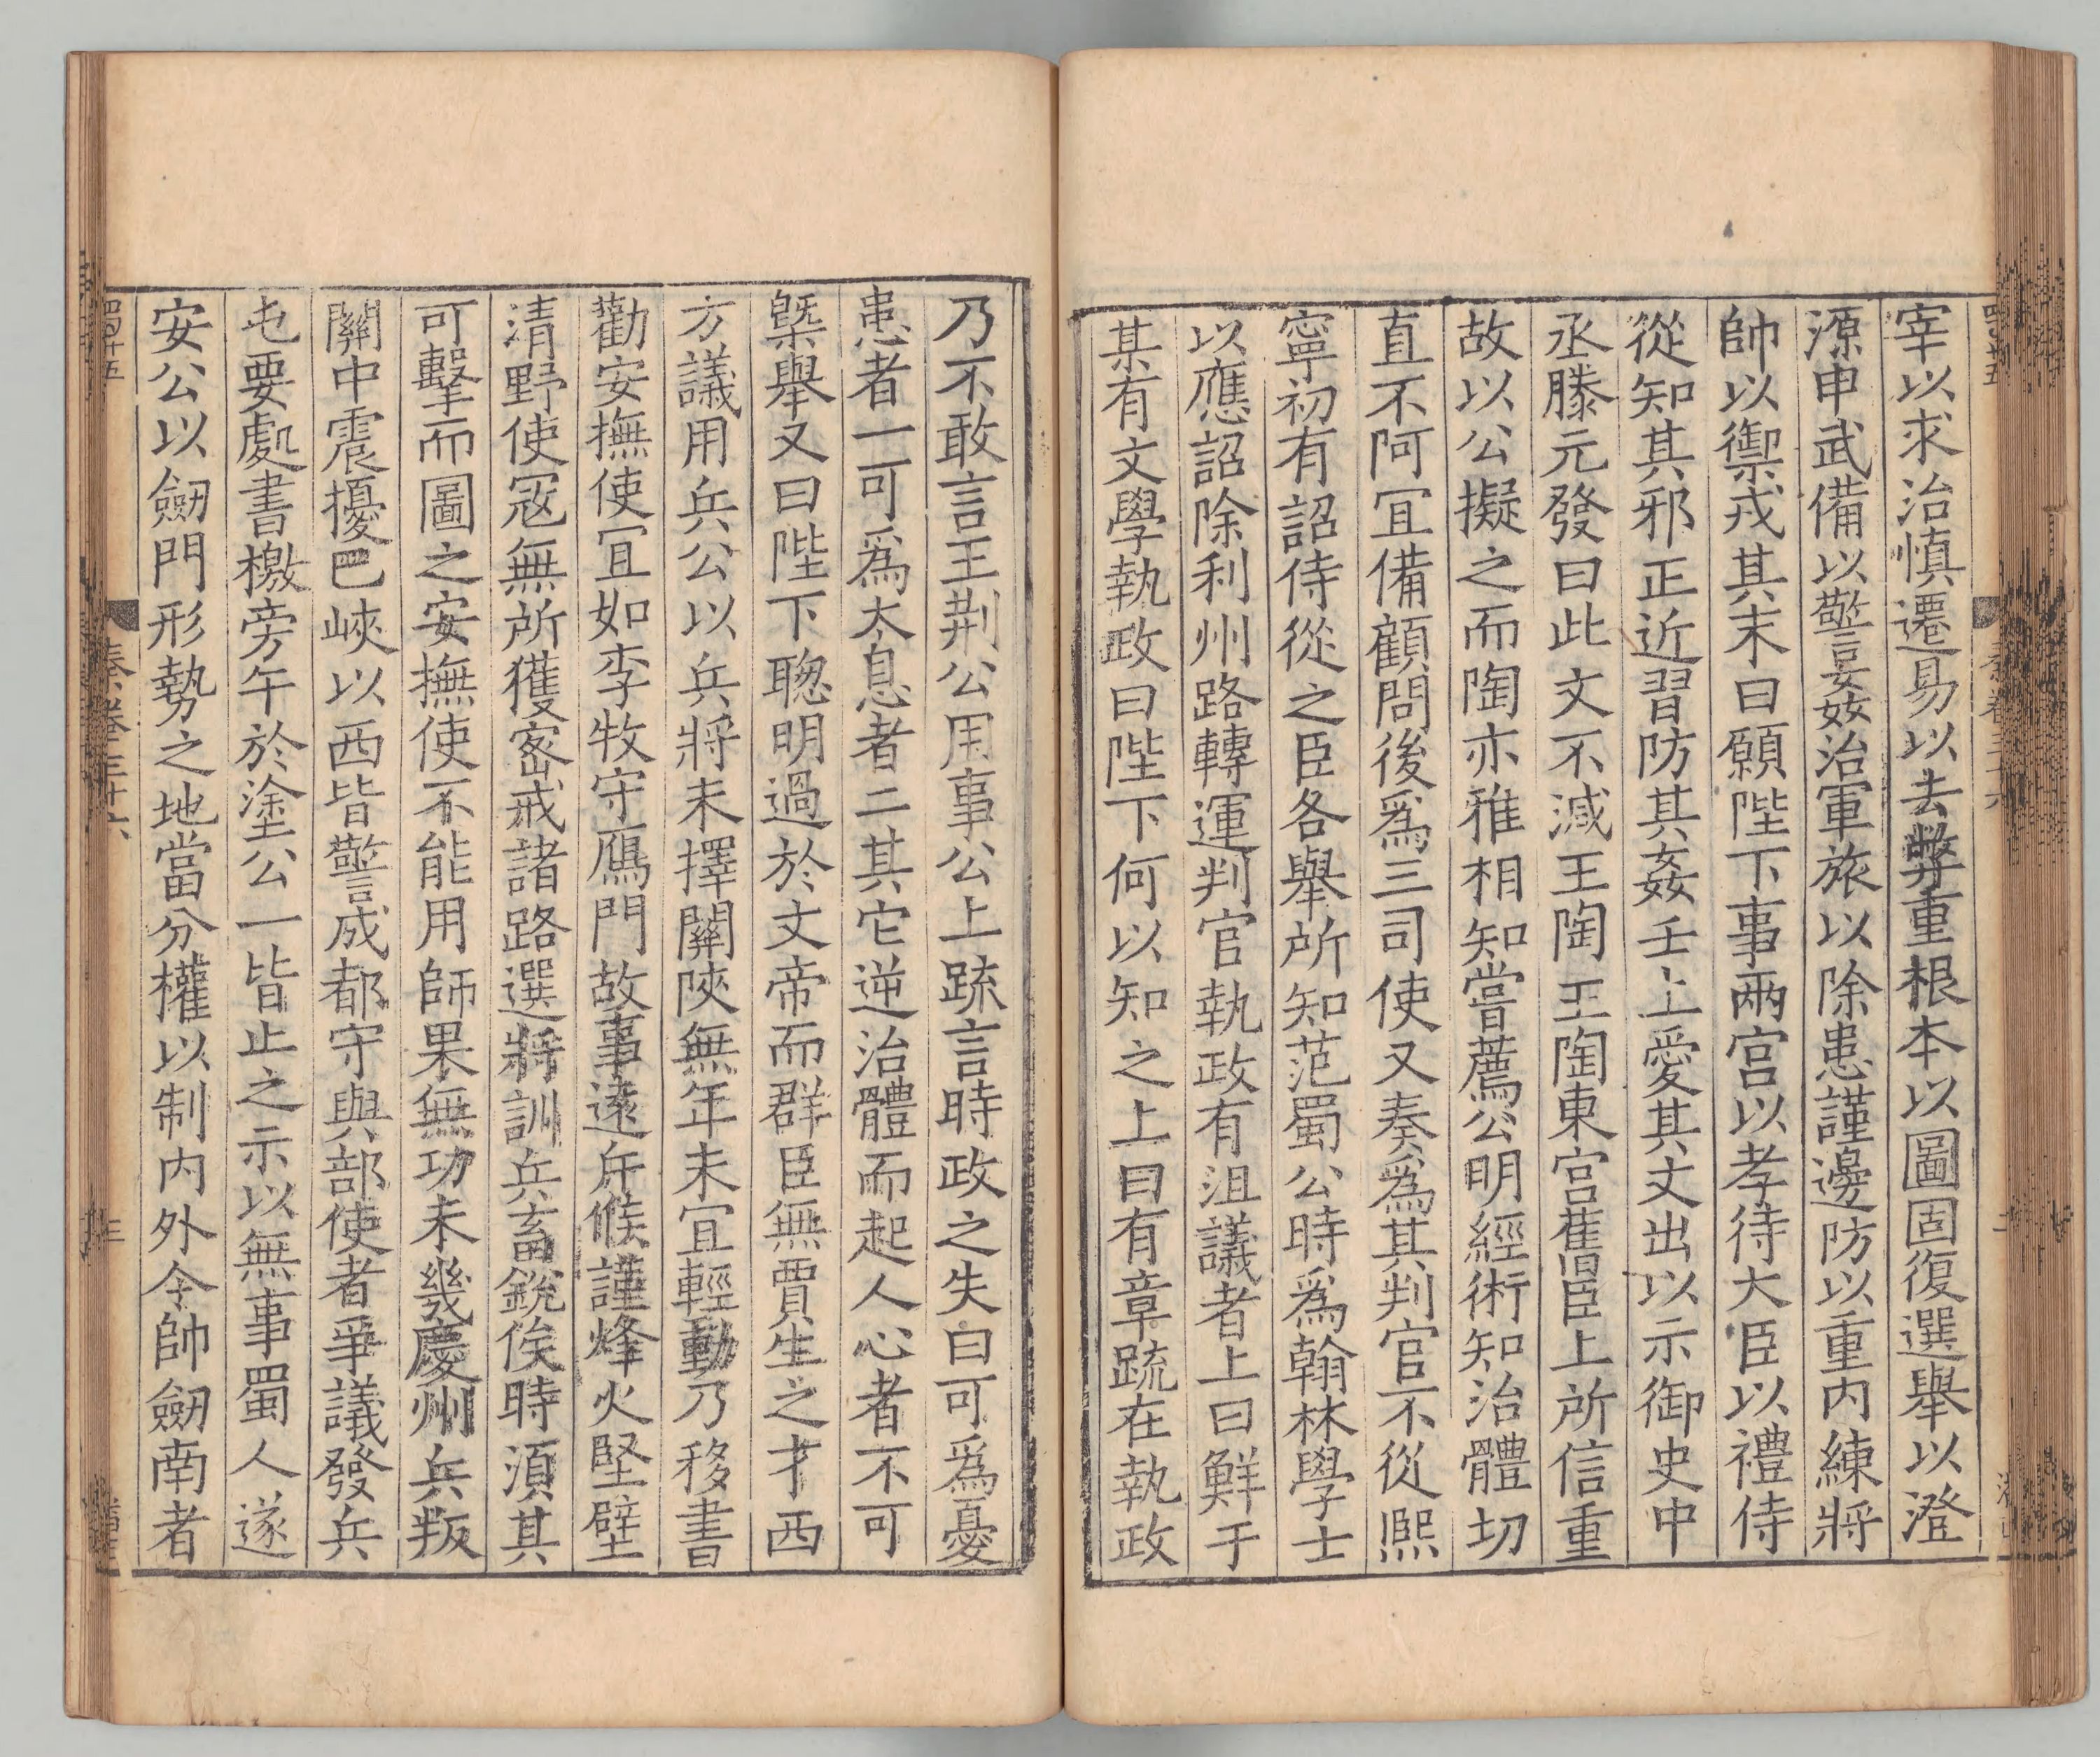 宰以求治慎遷易以去弊重根本以圖固復選舉以澄
源申武備以警妄姦治軍旅以除患謹邊防以重内練將
帥以禦戎其末曰願陛下事兩宫以孝待大臣以禮侍
從知其邪正近習防其姦壬上愛其文出以示御史中
丞滕元發曰此文不減王陶王陶東宫舊臣上所信重
故以公擬之而陶亦雅相知嘗薦公明經術知治體切
直不阿冝備顧問後爲三司使又奏爲其判官不從熈
寧初有詔侍從之臣各舉所知范蜀公時爲翰林學士
以應詔除利州路轉運判官執政有沮議者上曰鮮于
某有文學執政曰陛下何以知之上曰有章疏在執政
乃不敢言王荆公用事公上疏言時政之失曰可爲憂
患者一可爲太息者二其它逆治體而起人心者不可
槩舉又曰陛下聦明過於文帝而群臣無賈生之才西
方議用兵公以兵將未擇關陝無年未冝輕動乃移書
勸安撫使冝如李牧守鴈門故事遠斥候謹烽火堅壁
清野使冦無所獲宻戒諸路選將訓兵畜銳俟時湏其
可擊而圖之安撫使不能用師果無功未幾慶州兵叛
關中震擾巴峽以西皆警成都守與部使者爭議發兵
屯要處書檄旁午於塗公一皆止之示以無事蜀人遂
安公以劒門形勢之地當分權以制内外令帥劒南者
奏卷三十六
三